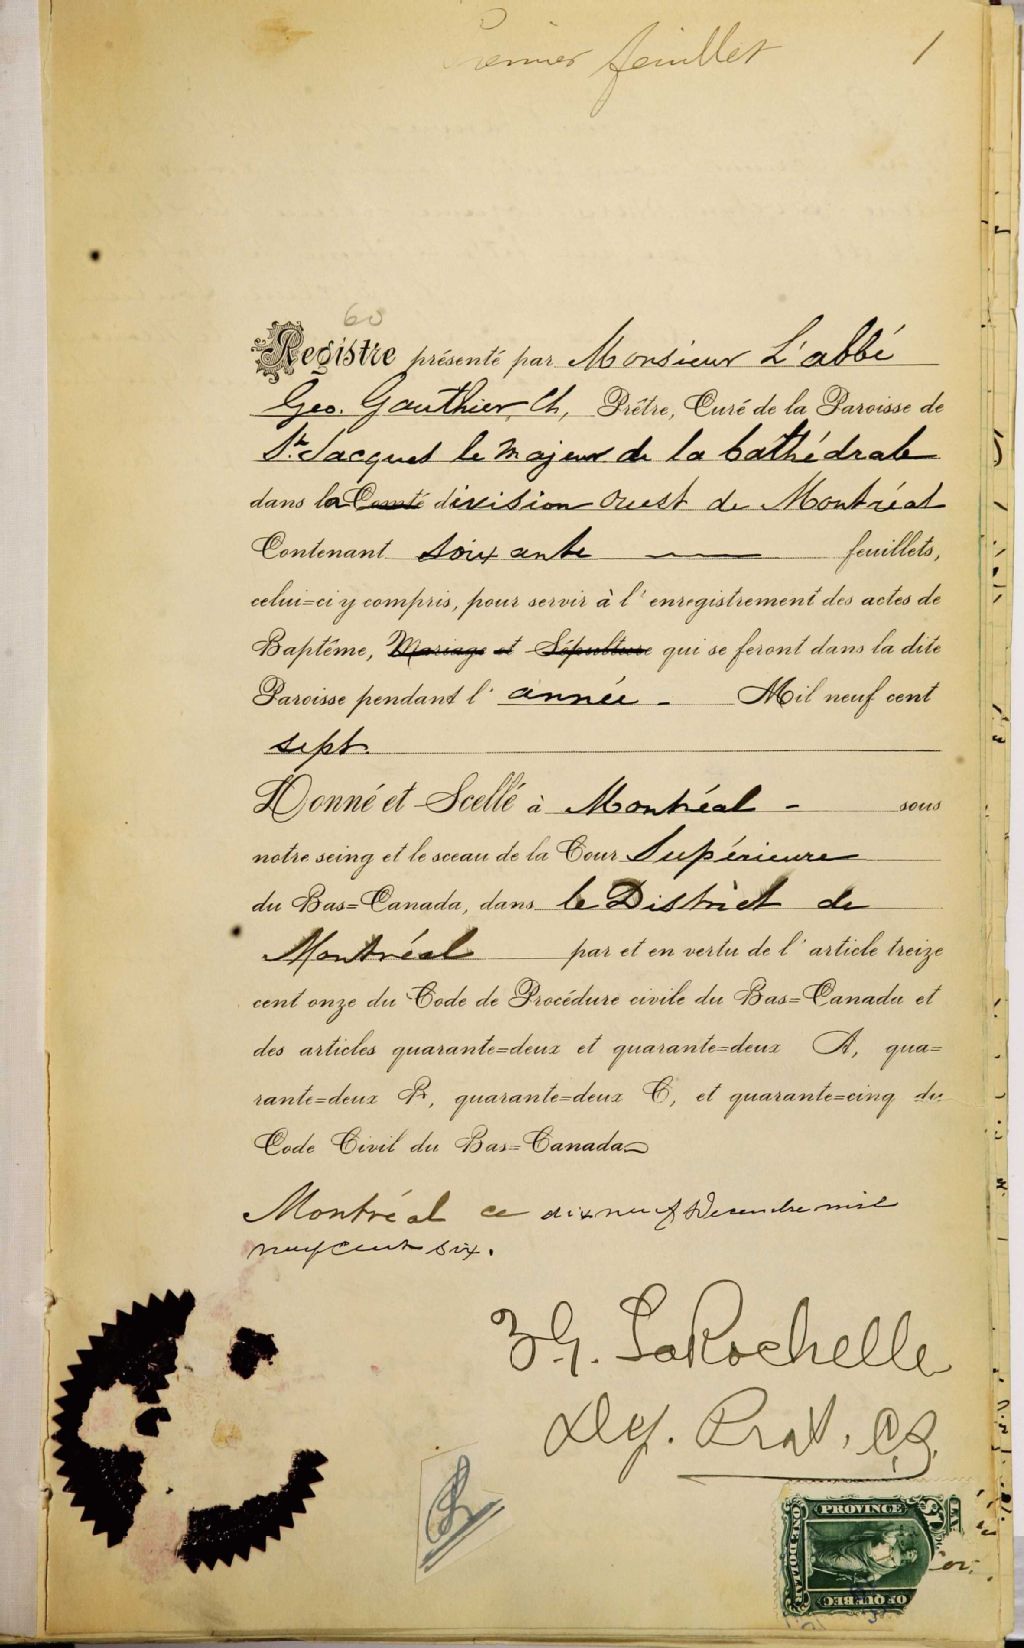 Premier feuillet 1
60
Registre présenté par Monsieur L'abbé
Geo. Gauthier, Ch, Prêtre, Curé de la Paroisse de
St. Jacques le Majeur de la Cathédrale
dans la Comté division Ouest de Montréal
Contenant soixante feuillets,
celui=ci y compris, pour servir à l'enregistrement des actes de
Baptême, Mariage et Sépulture qui se feront dans la dite
Paroisse pendant l'année - Mil neuf cent
sept.
Donné et Scellé à Montréal - sous
notre seing et le sceau de la Cour Supérieure
du Bas=Canada, dans le District de
Montréal par et en vertu de l'article treize
cent onze du Code de Procédure civile du Bas=Canada et
des articles quarante=deux et quarante=deux A, qua=
rante=deux B, quarante=deux C, et quarante=cinq du
Code Civil du Bas=Canada
Montréal ce dix neuf Décembre mil
neuf cent six.
LaRochelle
Dep. Prot. C.S.
PROVINCE
ONE DOLLAR
OF QUEBEC